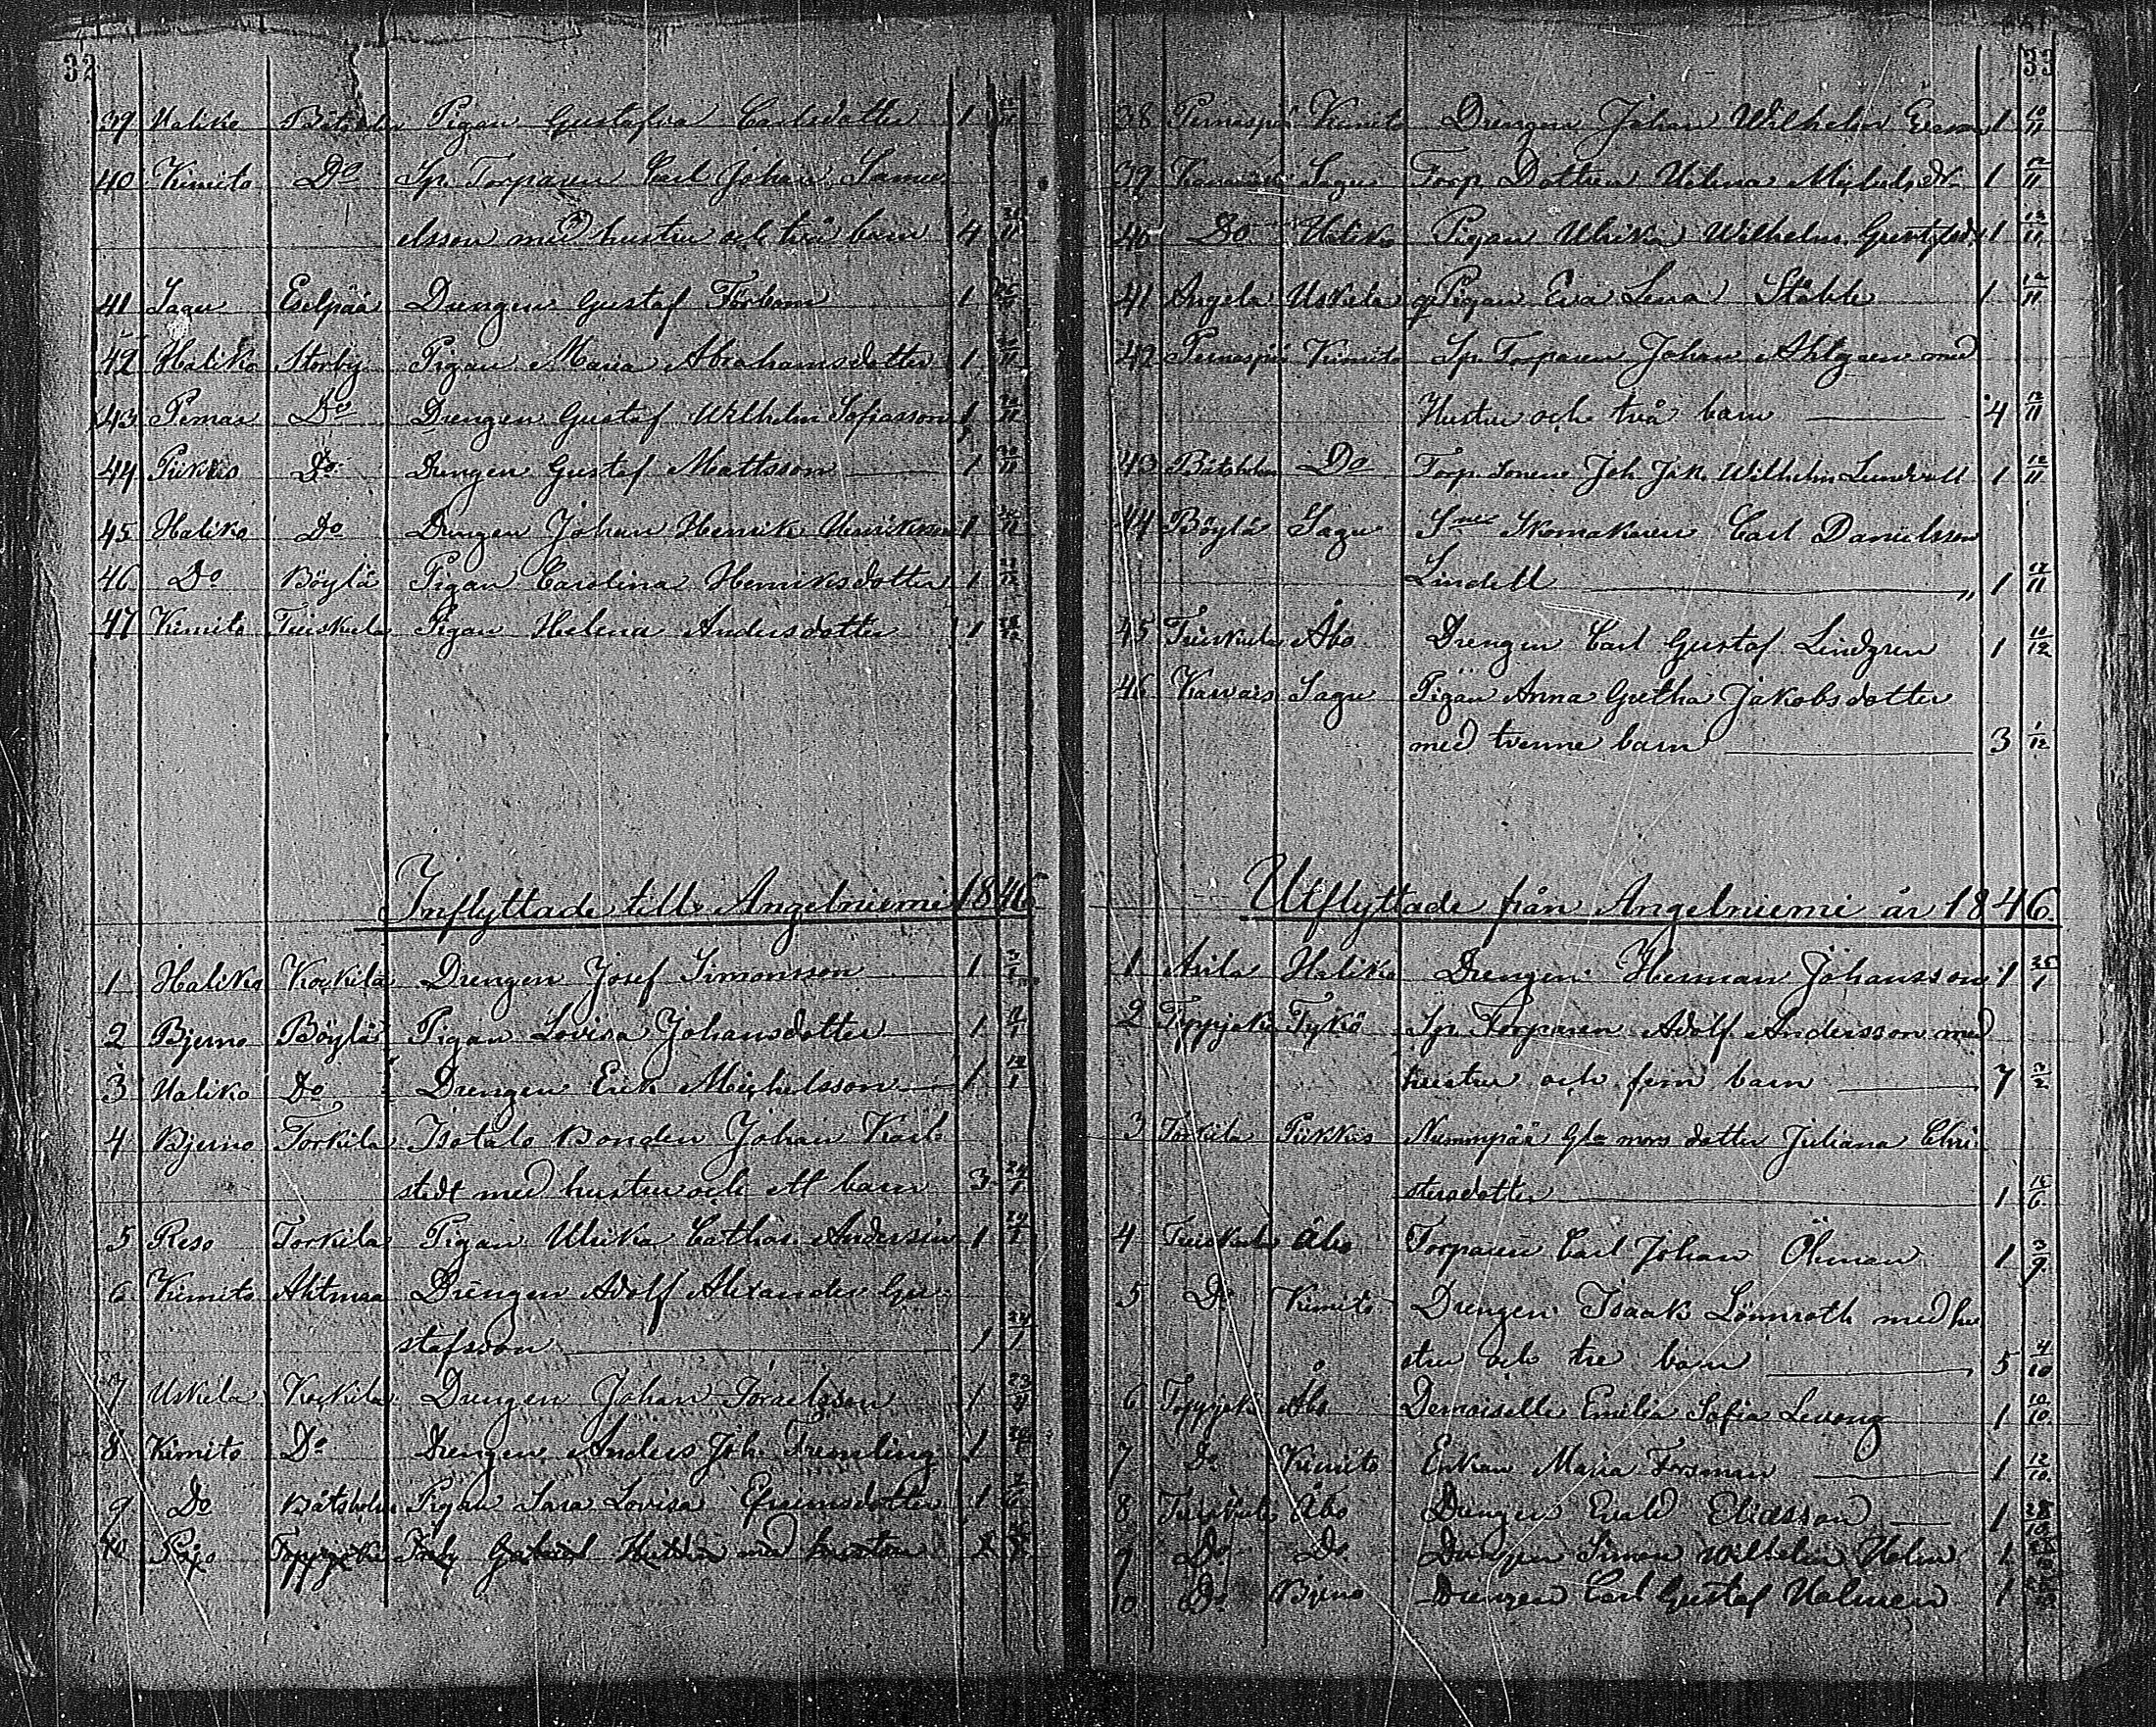 32
39 Haliko Båtsholm Pigan Gustafva Carlsdotter 1
40 Kimito Do Sp. Torparen Carl Johan Samu
elsson med hustru och två barn 4
41 Sagu Eselpää Drengen Gustaf Forsbom 1
42 Haliko Storby Pigan Maria Abrahamsdotter 1
43 Pemar Do Drengen Gustaf Wilhelm Sofiasson 1
44 Piikkis Do Drengen Gustaf Mattsson 1
45 Haliko Do Drengen Johan Henrik Henriksson 1
46 Do Böylä Pigan Carolina Henriksdotter 1
47 Kimito Tuiskula Pigan Helena Andersdotter 1
Inflyttade till Angelniemi 1846
1 Haliko Kokkila Drengen Josef Simonsson 1
2 Bjerno Böylä Pigan Lovisa Johansdotter 1
3 Haliko Do Drengen Erik Michelsson 1 12/1
4 Bjerno Torkila Isotalo Bonden Johan Karl
stedt med hustru och ett barn 3 24/1
5 Reso Torkila Pigan Ulrika Cathar. Andersin 1 24/1
6 Kimito Ahtmaa Drengen Adolf Alexander Gu
stafsson 1
7 Uskela Kokkila Drengen Johan Israelsson 1
8 Kimito Do Drengen Anders Joh. Tremling 1
9 Do Båtsholm Pigan Sara Lovisa Efraimsdotter 1
10 Toppjoki Gabriel med hustru 2
33
38 Pernaspää Kimito Drengen Johan Wilhelm 1 10/11
39 Sagu Torp. Dottren Helena 1 12/11
40 Do Haliko Pigan Ulrika Wilhelm. Gustafsdr 1 12/11
41 Angela Uskela Pigan Eva Lena Ståhle 1 12/11
42 Pernaspää Kimito Sp. Torparen Johan Ahlgren med
Hustru och två barn 4 12/11
43 Båtsholm Do Torp. Sonen Joh. Jak. Wilhelm Lundvall 1 12/11
44 Böylä Sagu Skomakaren Carl Danielsson
Lindell " 1 12/11
45 Tuiskula Åbo Drengen Carl Gustaf Lindgren 1 12/12
46 Karvais Sagu Pigan Anna Gretha Jakobsdotter
med tvenne barn 3 1/12
Utflyttade från Angelniemi år 1846
1 Asila Haliko Drengen Herman Johansson 1 25/1
2 Toppjoki Tykö Sp. Torparen Adolf Andersson med
hustru och fem barn 7 3/2
3 Torkila Piikkis Nummpää Gla mors dotter Juliana Chri
stersdotter 1 12/6
4 Tuiskula Åbo Torparen Carl Johan Öhman 1 3/9
5 Do Kimito Drengen Isaak Lönnroth med hu
stru och tre barn 5 4/10
6 Toppjoki Åbo Demoiselle Emilia Sofia Levong 1 10/10
7 Do Kimito Enkan Maria Forsman 1 12/10
8 Tuiskula Åbo Drengen Evald Eliasson 1 28/10
9 Do Do Drengen Simon Wilhelm Holm 1
10 Do Bjerno Drengen Carl Gustaf Holmen 1